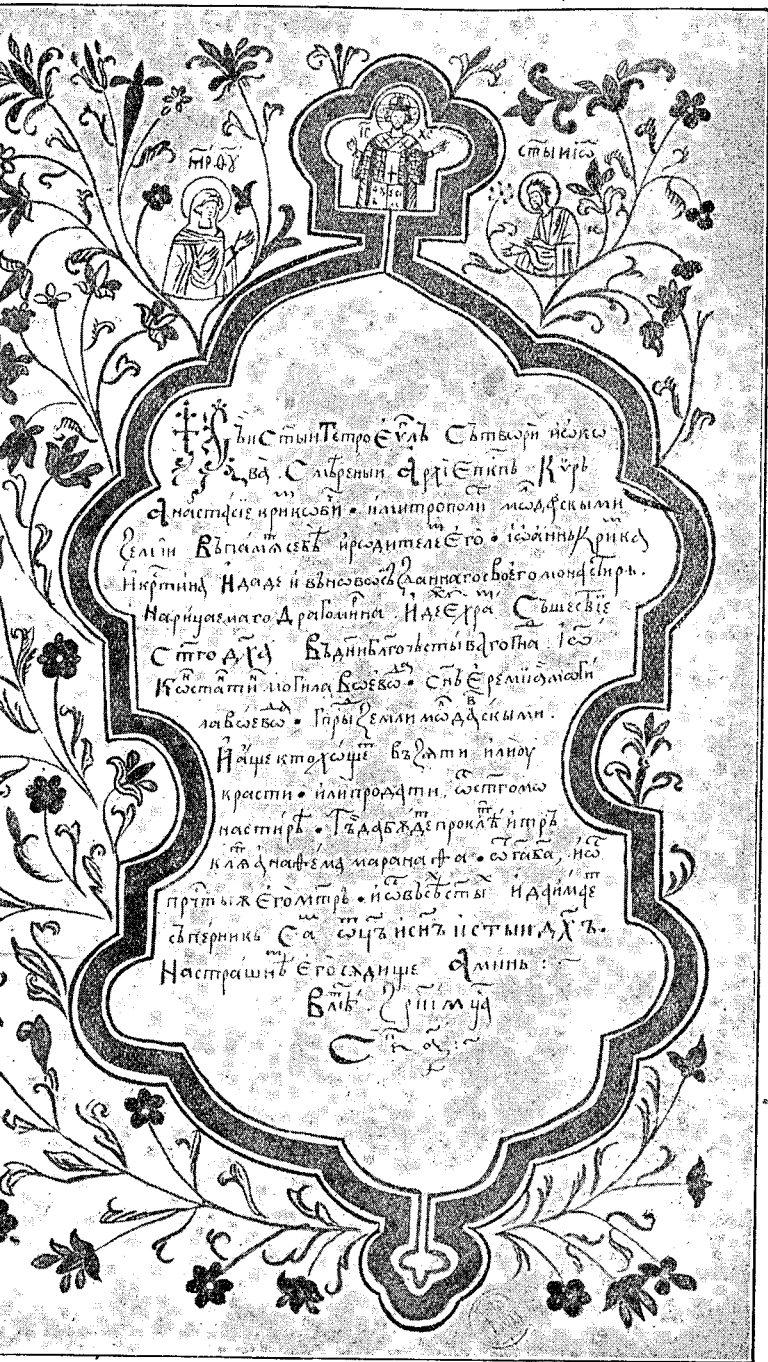 ІС ХС
МР ѲУ
СТЫИ ІѠ
† Съи С꙯тыи Тетроеѵ꙯лъ Сътвори и ѡкѡ
ва . Смѣреныи Архїепкпь Кѵрь
Анастасїе криковиⷱ · и митрополиⷮ молдⷡ҇аскыми
Ꙁемли Въ памѧⷮ себѣ и родителе Его · іѡаннь Крика
и крⷭ҇тина И даде и въ новосъꙁданнаго своего монастирѣ .
Нарицаемаго Драгомирна . Идеже храⷨ Съшествїе
С꙯тго Дх꙯а Въ дни благочьстываго Г꙯на Іѡ
Кѡстаⷩтиⷩ могила Воевоⷣ · С꙯нь Еремїи могї
ла воевоⷣ · Г꙯пⷣры Ꙁемли молдавскыми .
И аще кто хощеⷮ въꙁѧти или оу
красти · или продати . ѿ с꙯тго мо
настирѣ · Тъ да бѫде проклѣⷮ и тръ
клѧⷮ анаѳема мараната · ѿ га ба , и ѿ
прчⷭ҇тыѫ Его м꙯трѣ · и ѿ въсѣⷯ с꙯тыⷯ и да имаеⷮ
съперникь Саⷨ ѿць и с꙯нъ и с꙯тыи дх꙯ъ .
На страшнѣⷨ Его сѫдище Аминь : ~
В лѣⷮ . ꙁриі м꙯ца